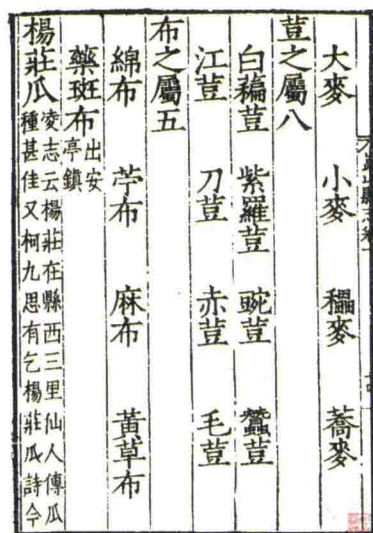 大麥　小麥　穤麥　蕎麥
荳之屬八
白藊荳　紫羅荳　豌荳　蠶荳
江荳　刀荳　赤荳　毛荳
布之屬五
綿布　苧布　麻布　黃草布
藥斑布出安亭鎮
楊莊瓜凌志云楊莊在縣西三里仙人傳瓜種甚佳又柯九思有乞楊莊瓜詩今